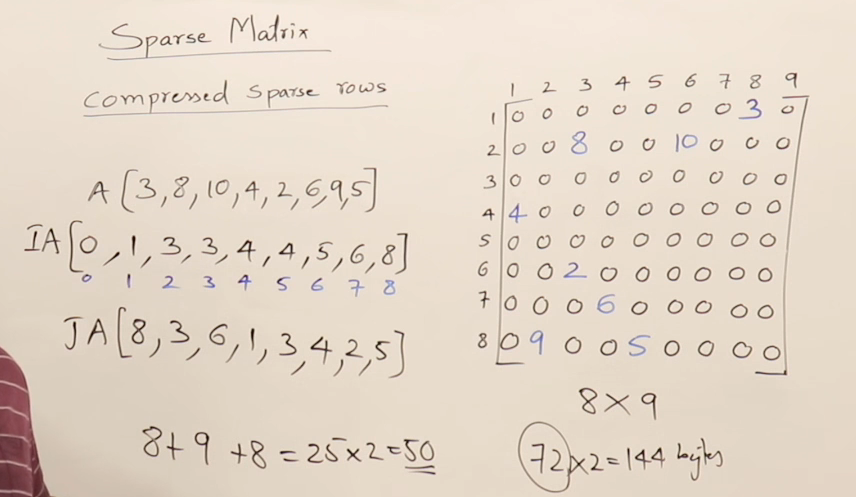 Sparse Matrix
Compressed Sparse rows
A [3,8,10,4,2,6,9,5]
IA[0,1,3,3,4,4,5,6,8]
0 1 2 3 4 5 6 7 8
JA[8,3,6,1,3,4,2,5]
8+9+8=25×2=50
1 2 3 4 5 6 7 8 9
1 0 0 0 0 0 0 0 3 0
2 0 0 8 0 0 10 0 0 0
3 0 0 0 0 0 0 0 0 0
4 4 0 0 0 0 0 0 0 0
5 0 0 0 0 0 0 0 0 0
6 0 0 2 0 0 0 0 0 0
7 0 0 0 6 0 0 0 0 0
8 0 9 0 0 5 0 0 0 0
8×9
72×2=144 bytes